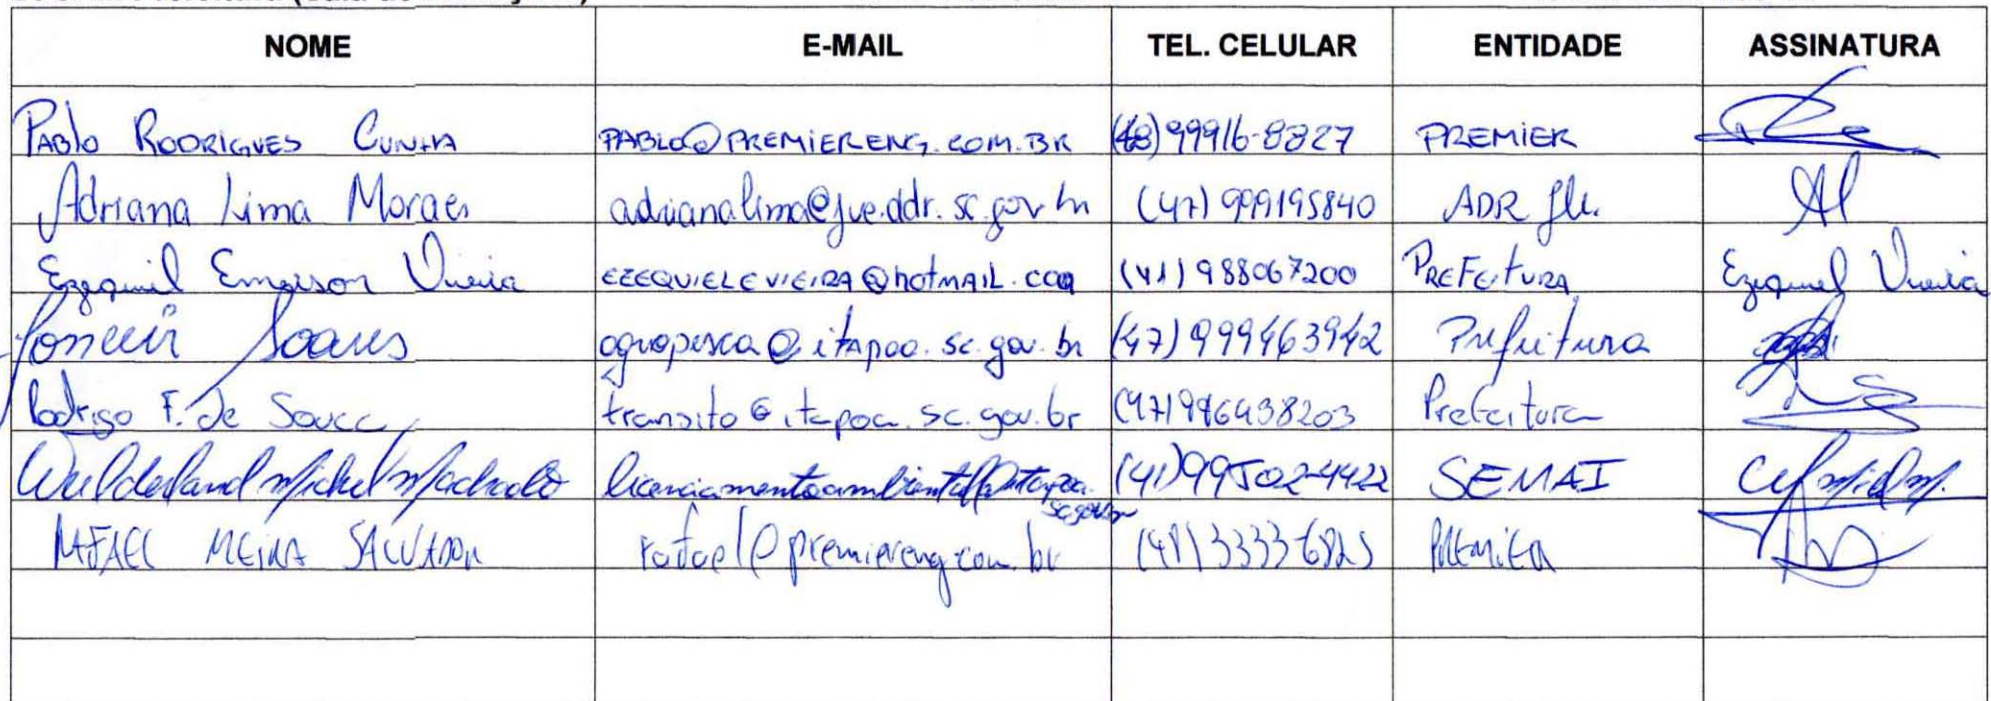 NOME E-MAIL TEL. CELULAR ENTIDADE ASSINATURA
PABlo RODRIGUES CUNHA PABLO@PREMIERENG.COM.BR (48)99916-8827 PREMIER
Adriana Lima Moraes adrianalima@jve.ddr.sc.gov.br (47) 999195840 ADR Jlle.
Ezequiel Emerson Vieira EZEQUIELEVIEIRA@hotmAIL.com (41) 988067200 PREFEITURA Ezequiel Vieira
Soares agropesca@itapoa.sc.gov.br (47) 999463942 Prefeitura
Rodrigo F. de Souza transito@itapoa.sc.gov.br (47) 996438203 Prefeitura
Michel Machado licenciamentoambiental@itapoa.sc.gov.br (41)99502-4422 SEMAI
RAFAEL MEIRA SALVADOR rafael@premiereng.com.br (48) 3333-6825 PREMIER